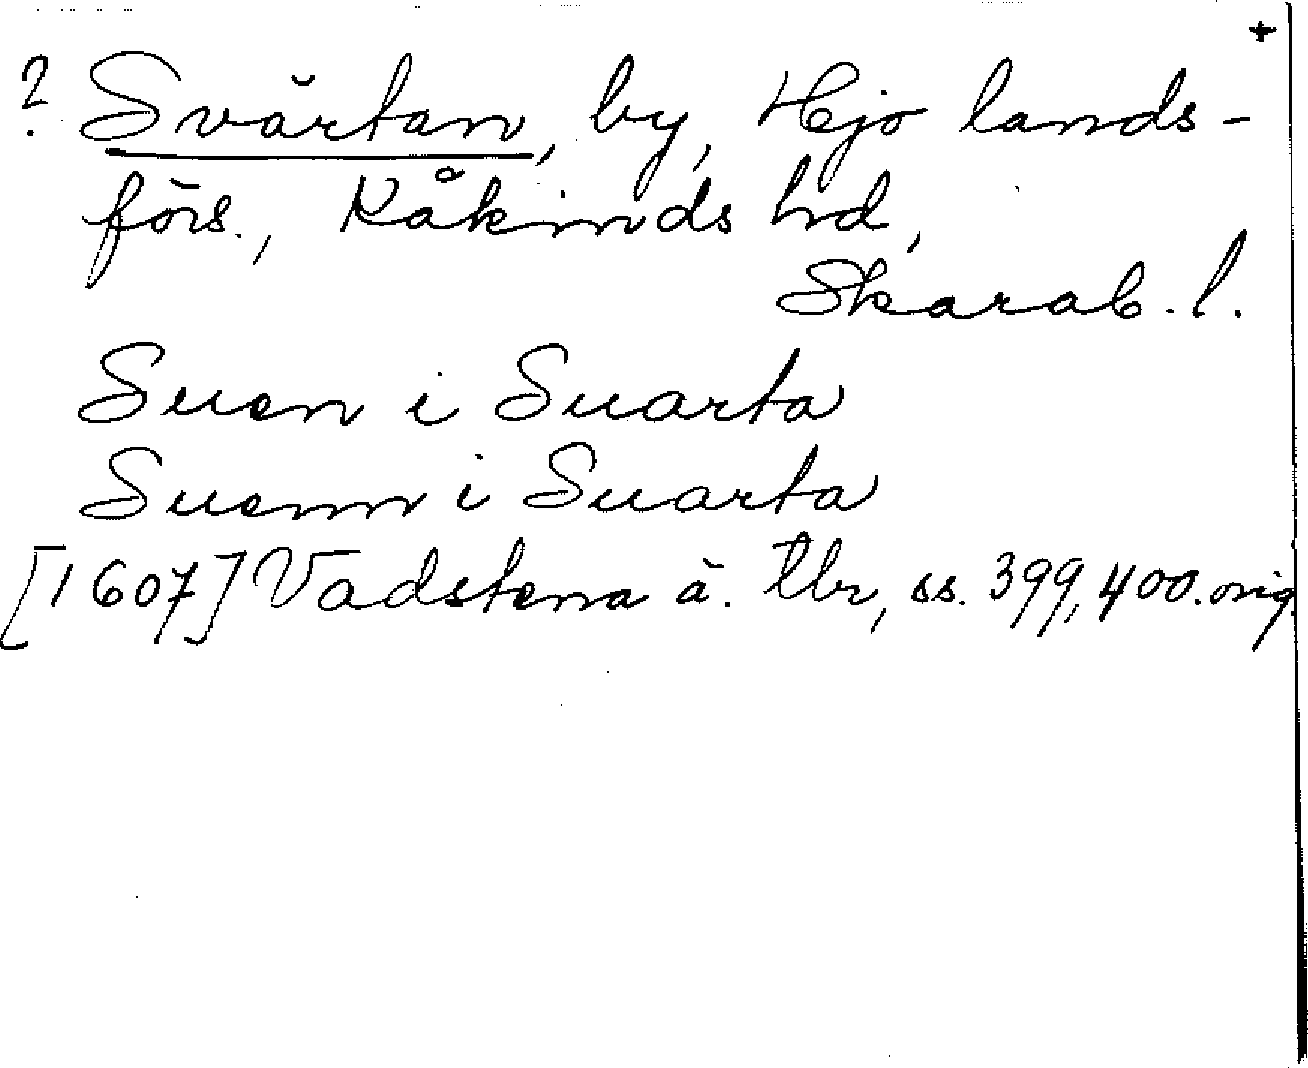 +
? Svärtan, by, Hjo lands-
förs., Kåkinds hd,
Skarab. l.
Suen i Suarta
Suenn i Suarta
[1607] Vadstena ä. tbr, ss. 399, 400. orig.